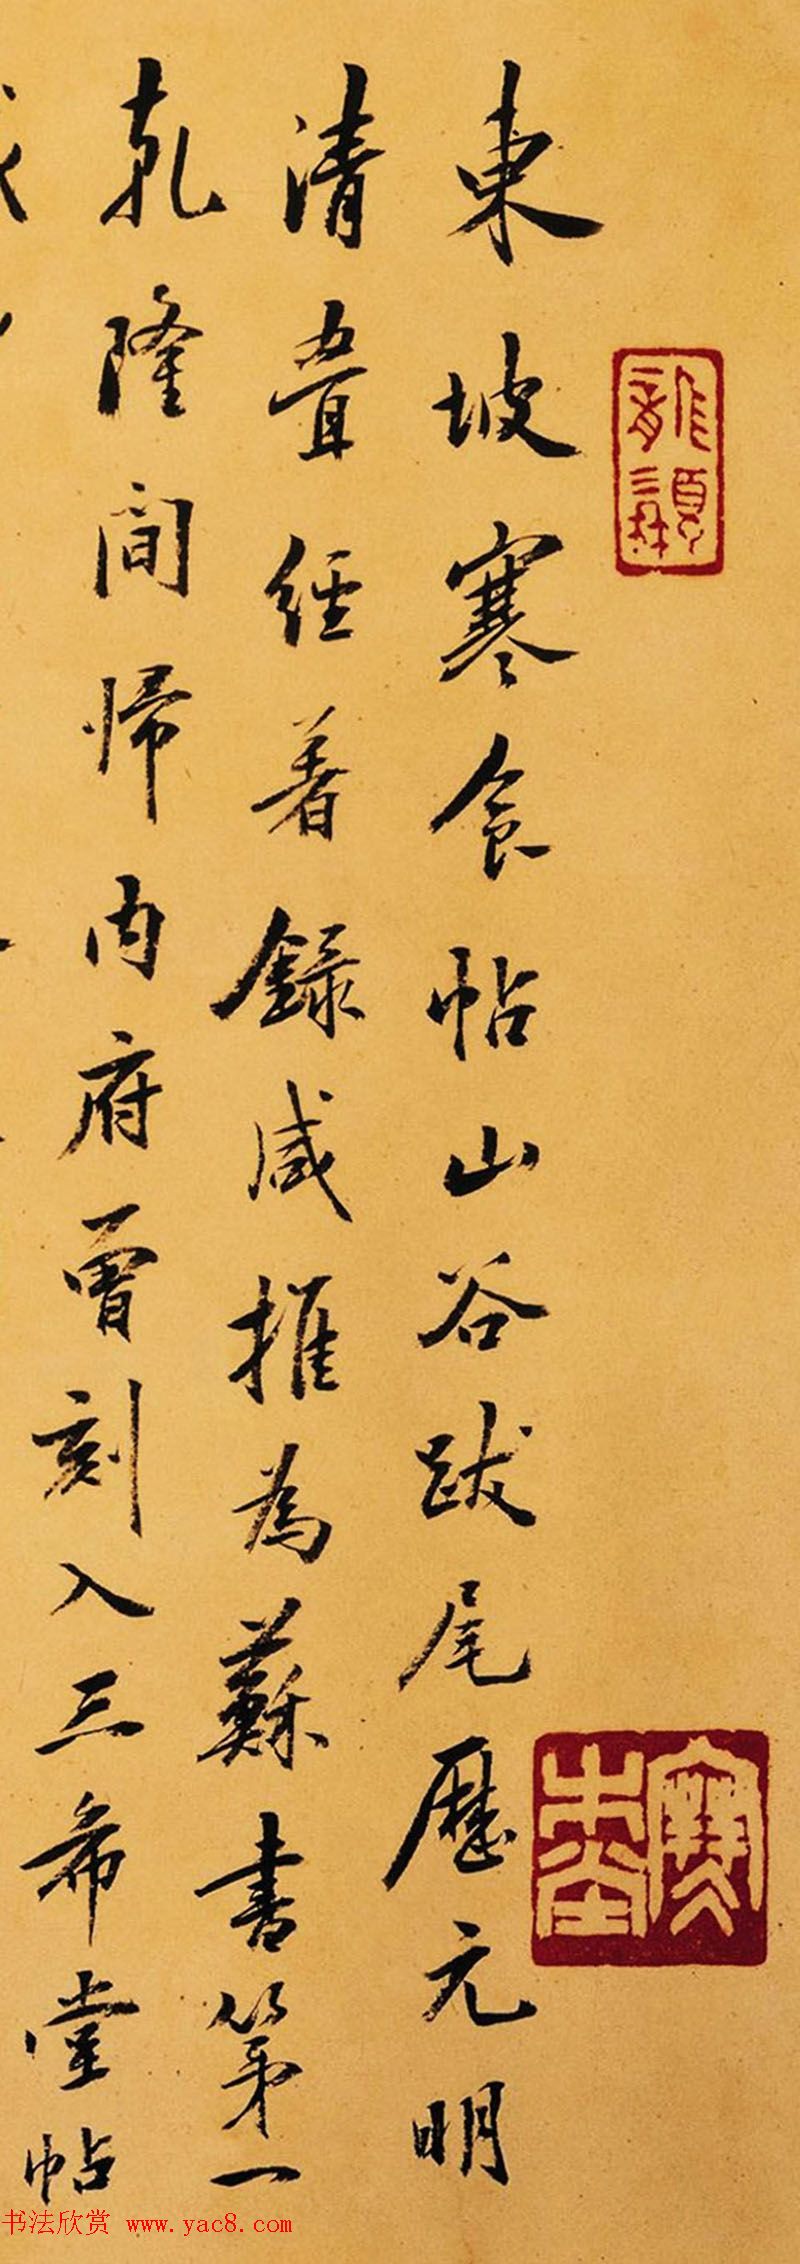 東坡寒食帖山谷跋尾歷元明
清疊經著錄咸推為蘇書第一
乾隆間歸內府曾刻入三希堂帖
书法欣赏 www.yac8.com